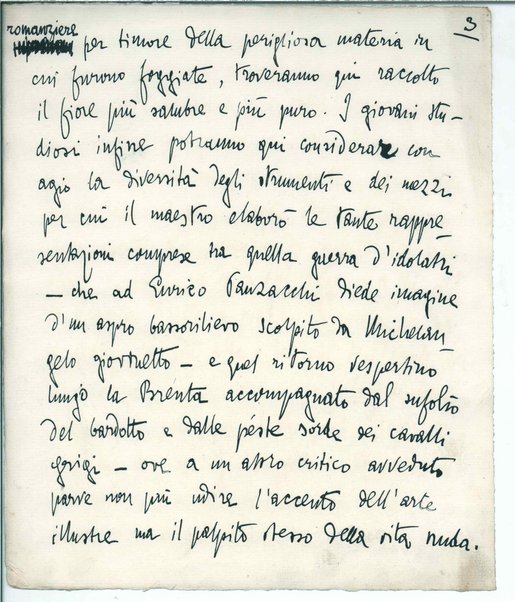 3
romanziere
per timore della perigliosa materia in
cui furono foggiate, troveranno qui raccolto
il fiore più salubre e più puro. I giovani stu-
diosi infine potranno qui considerare con
agio la diversità degli strumenti e dei mezzi
per cui il maestro elaborò le tante rappre
sentazioni comprese tra quella guerra d'idolatri
— che ad Enrico Panzacchi diede imagine
d'un aspro bassorilievo scolpito da Michelan
gelo giovinetto — e quel ritorno vespertino
lungo la Brenta accompagnato dal sufolio
del bardotto e dalle péste sorde dei cavalli
grigi — ove a un altro critico avveduto
parve non più udire l'accento dell'arte
illustre ma il palpito stesso della vita nuda.